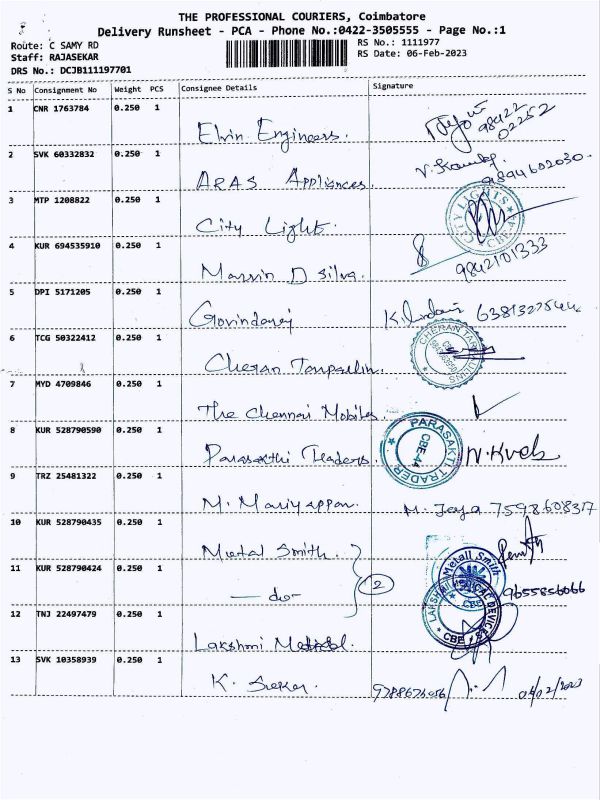 THE PROFESSIONAL COURIERS, Coimbatore
Delivery Runsheet - PCA - Phone No.:0422-3505555 - Page No.:1
Route: C SAMY RD
RS No.: 1111977
Staff: RAJASEKAR
RS Date: 06-Feb-2023
DRS No.: DCJB111197701
S No Consignment No Weight PCS Consignee Details Signature
1 CNR 1763784 0.250 1
Elvin Engineers. 98422 02252
2 SVK 60332832 0.250 1
ARAS Appliances. 9894602030.
3 MTP 1208822 0.250 1
City Light. CITY LIGHTS CBE-44
4 KUR 694535910 0.250 1
Marvin D Silva. 9842101333
5 DPI 5171205 0.250 1
Govindaraj
6 TCG 50322412 0.250 1
Cheran CHERAN
7 MYD 4709846 0.250 1
The Chennai Mobiles
8 KUR 528790590 0.250 1
Parasakthi Traders. PARASAKTI TRADER CBE-44
9 TRZ 25481322 0.250 1
M. Mariyappan. M. Jeya 7598608317
10 KUR 528790435 0.250 1
Metal Smith. Metall Smith
11 KUR 528790424 0.250 1
-do- 2 9655856066
12 TNJ 22497479 0.250 1
Lakshmi Medical. LAKSHMI MEDICAL DEVICES CBE
13 SVK 10358939 0.250 1
K. Sekar.